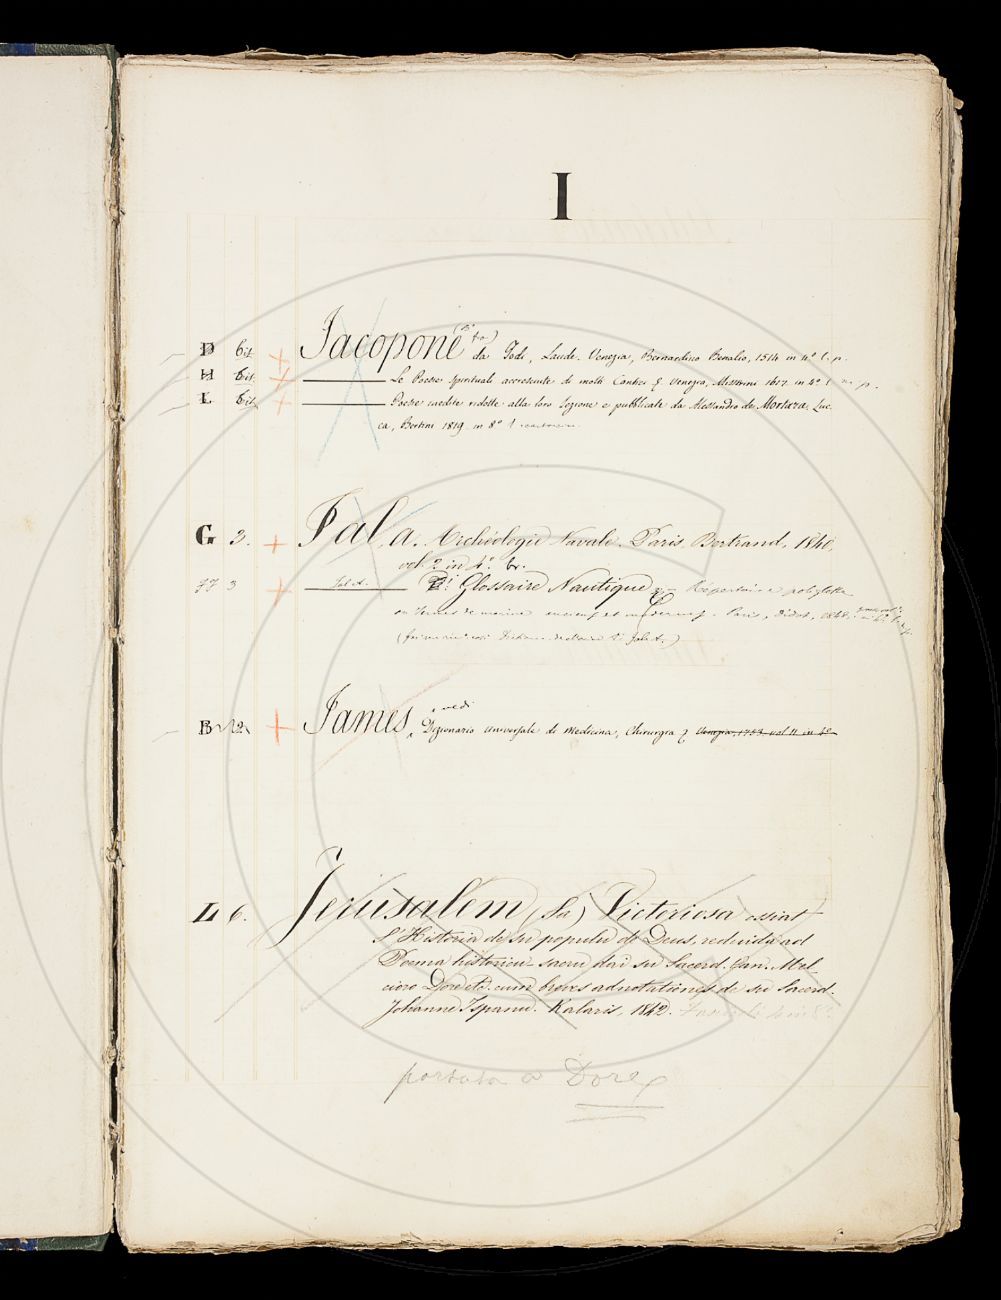 I
D bis Jacopone (Bto) da Todi, Laude. Venezia, Bernardino Benalio, 1514 in 4º l. p.
H bis Le Poesie spirituali accresciute di molti Cantici & Venezia, Misserini 1617. in 4º l m. p.
L bis Poesie inedite ridotte alla loro lezione e pubblicate da Alessandro de Mortara. Luc-
ca, Bertini 1819. in 8º
G 3. Jal, A. Archéologie Navale. Paris, Bertrand, 1840,
vol. 2 in 4º. br.
3 Jal A. Dº. Glossaire Nautique Répertoire polyglotte
de termes de marine anciens et modernes. Paris, Didot, 1848.
B 2 James, vedi Dizionario universale di medicina, Chirurgia & Venezia, 1753. vol 11 in 4º
L 6. Jerusalem (Sa) Victoriosa ossiat
S'Historia de su populu de Deus, reduida ad
Poema historicu sacru dai su Sacerd. Gan. Mel-
cioro Dore etc. cum breves adnotationes de su Sacerd.
Johanne Ispanu. Kalaris, 1842.
portata a Dore